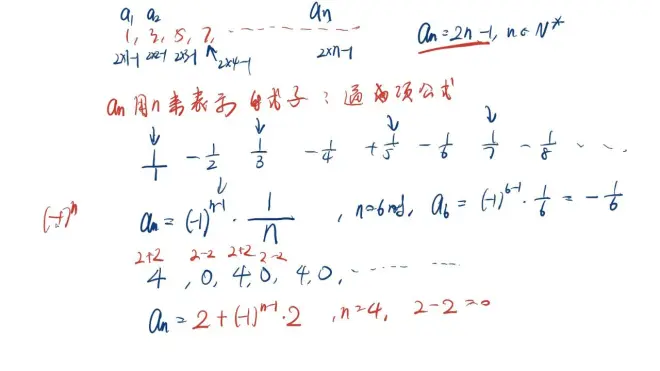 a₁ a₂ aₙ
1, 3, 5, 7, ---------- aₙ=2n-1, n∈N*
2×1-1 2×2-1 2×3-1 2×4-1 2×n-1
aₙ用n来表示的式子:通项公式
1/1 -1/2 1/3 -1/4 +1/5 -1/6 1/7 -1/8 ...
(-1)ⁿ aₙ=(-1)ⁿ⁻¹·1/n ,n=6时, a₆=(-1)⁶⁻¹·1/6=-1/6
2+2 2-2 2+2 2-2
4, 0, 4, 0, 4, 0, ------
aₙ=2+(-1)ⁿ⁻¹·2 ,n=4, 2-2=0